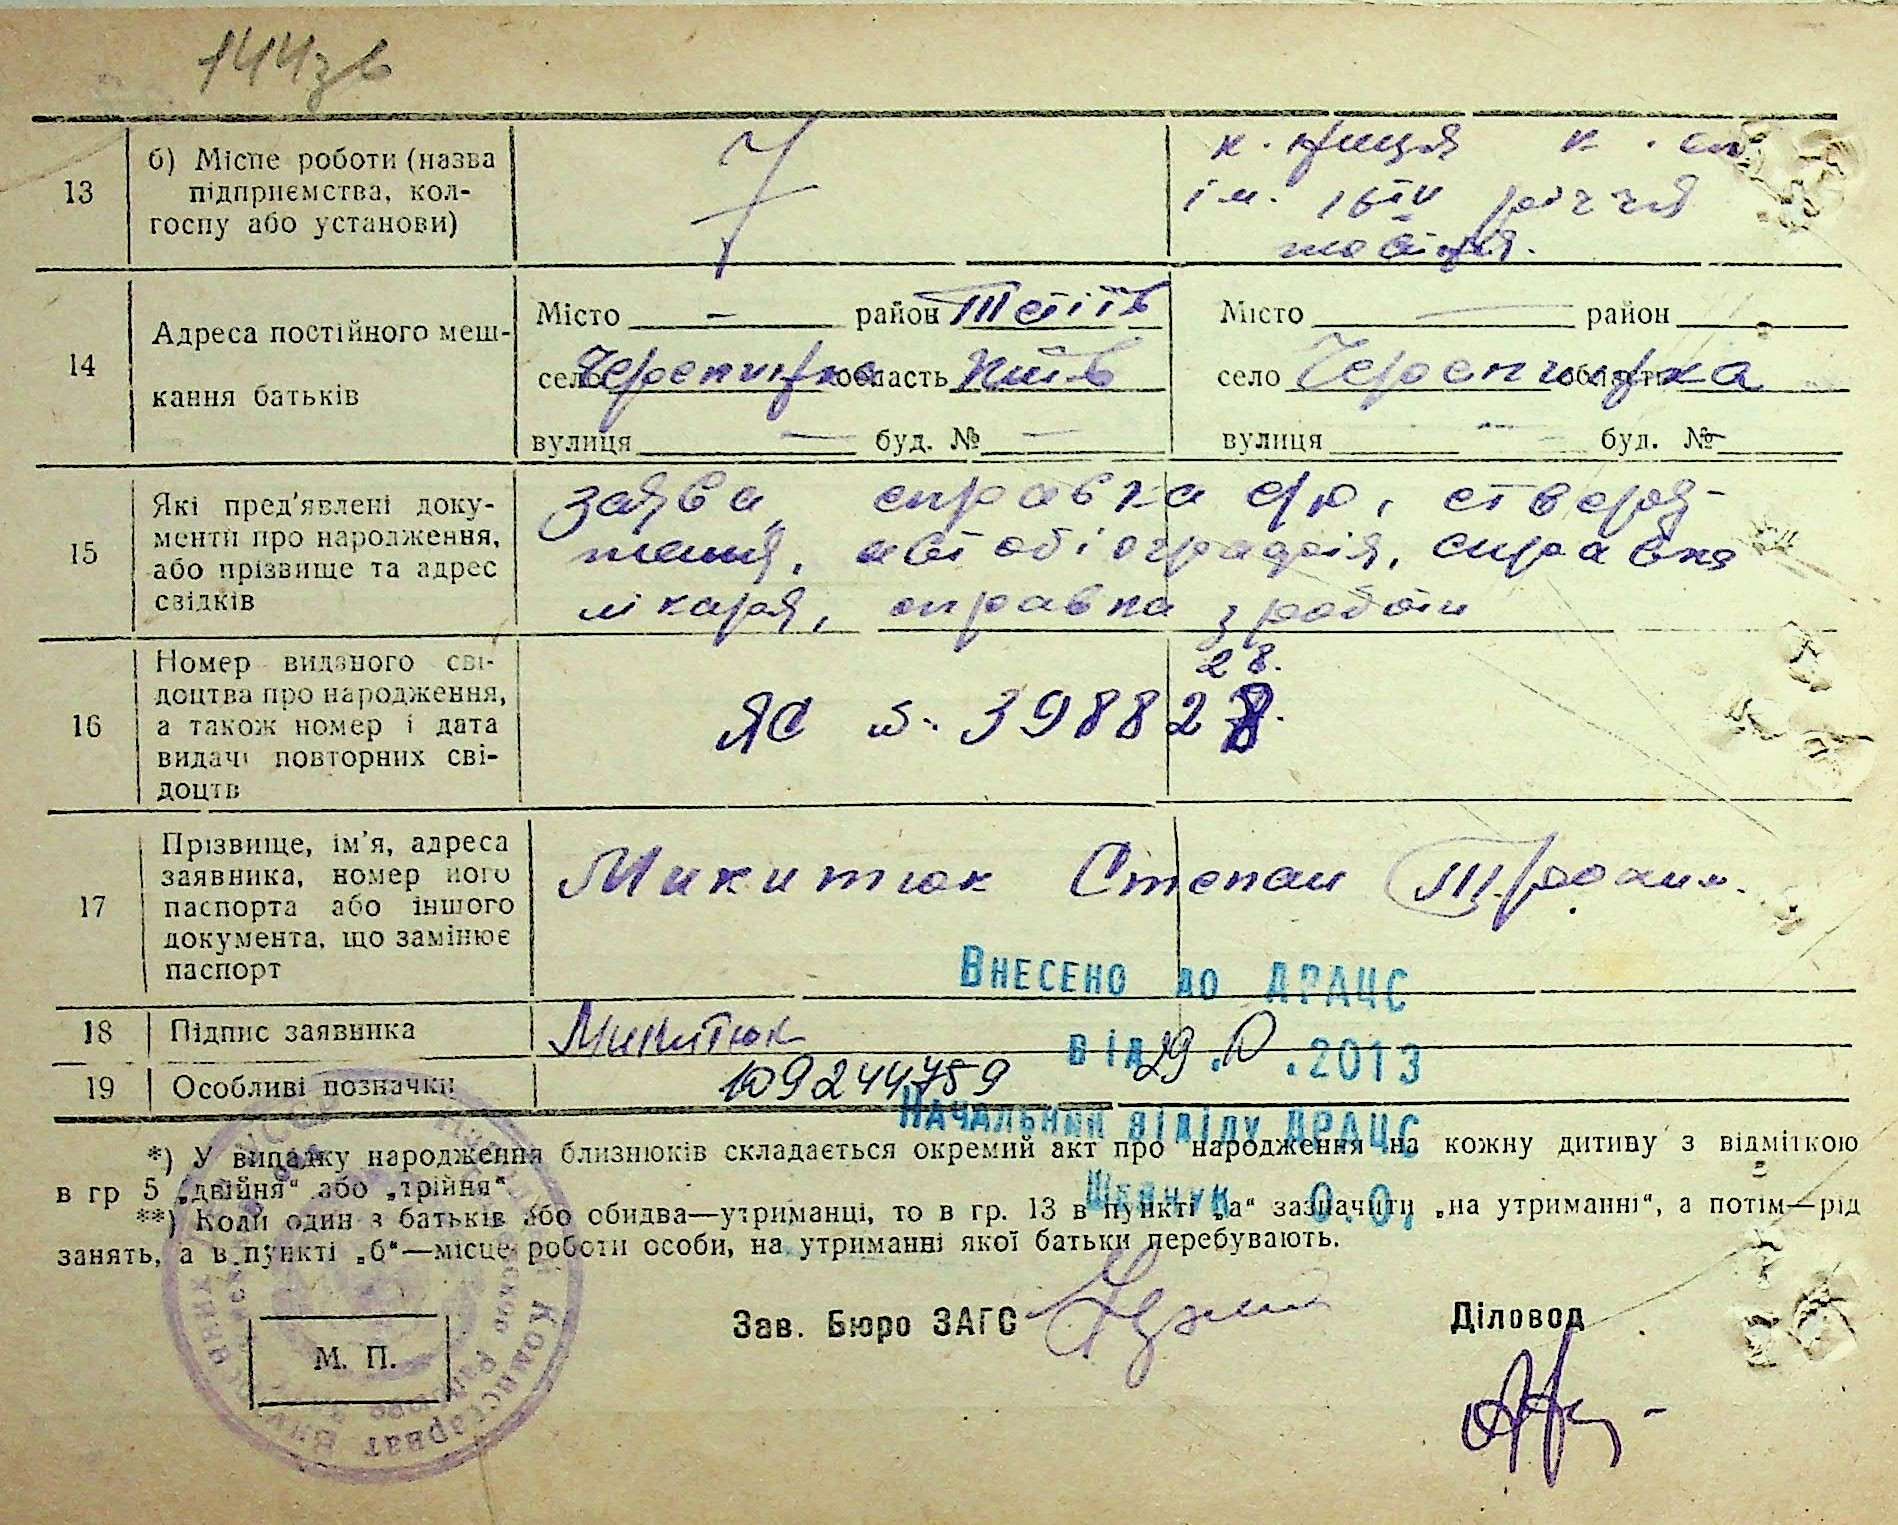 144зв
13
б) Місце роботи (назва
підприємства, кол-
госпу або установи)
к. к. сп
ім. 16ій річчя
жовтня.
14
Адреса постійного меш-
кання батьків
Місто — район Тетіїв
село Черепинка область Київ
вулиця — буд. № —
Місто — район
село Черепинка область
вулиця — буд. №—
15
Які пред'явлені доку-
менти про народження,
або прізвище та адрес
свідків
заява, справка с/р, стверд-
ження, автобіографія, справка
лікаря, справка з роботи
16
Номер виданого сві-
доцтва про народження,
а також номер і дата
видачі повторних сві-
доцтв
28.
ЯС № 398828.
17
Прізвище, ім'я, адреса
заявника, номер його
паспорта або іншого
документа, що замінює
паспорт
Микитюк Степан
Внесено до ДРАЦС
18
Підпис заявника
Микитюк
від 29. .2013
19
Особливі позначки
109244759
Начальник відділу ДРАЦС
*) У випадку народження близнюків складається окремий акт про народження на кожну дитиву з відміткою
в гр 5 „двійня“ або „трійня“
Шевчук О.О.
**) Коли один з батьків або обидва—утриманці, то в гр. 13 в пункті „а“ зазначити „на утриманні“, а потім—рід
занять, а в пункті „б“—місце роботи особи, на утриманні якої батьки перебувають.
Зав. Бюро ЗАГС
Діловод
М. П.
Комісаріат Внутр